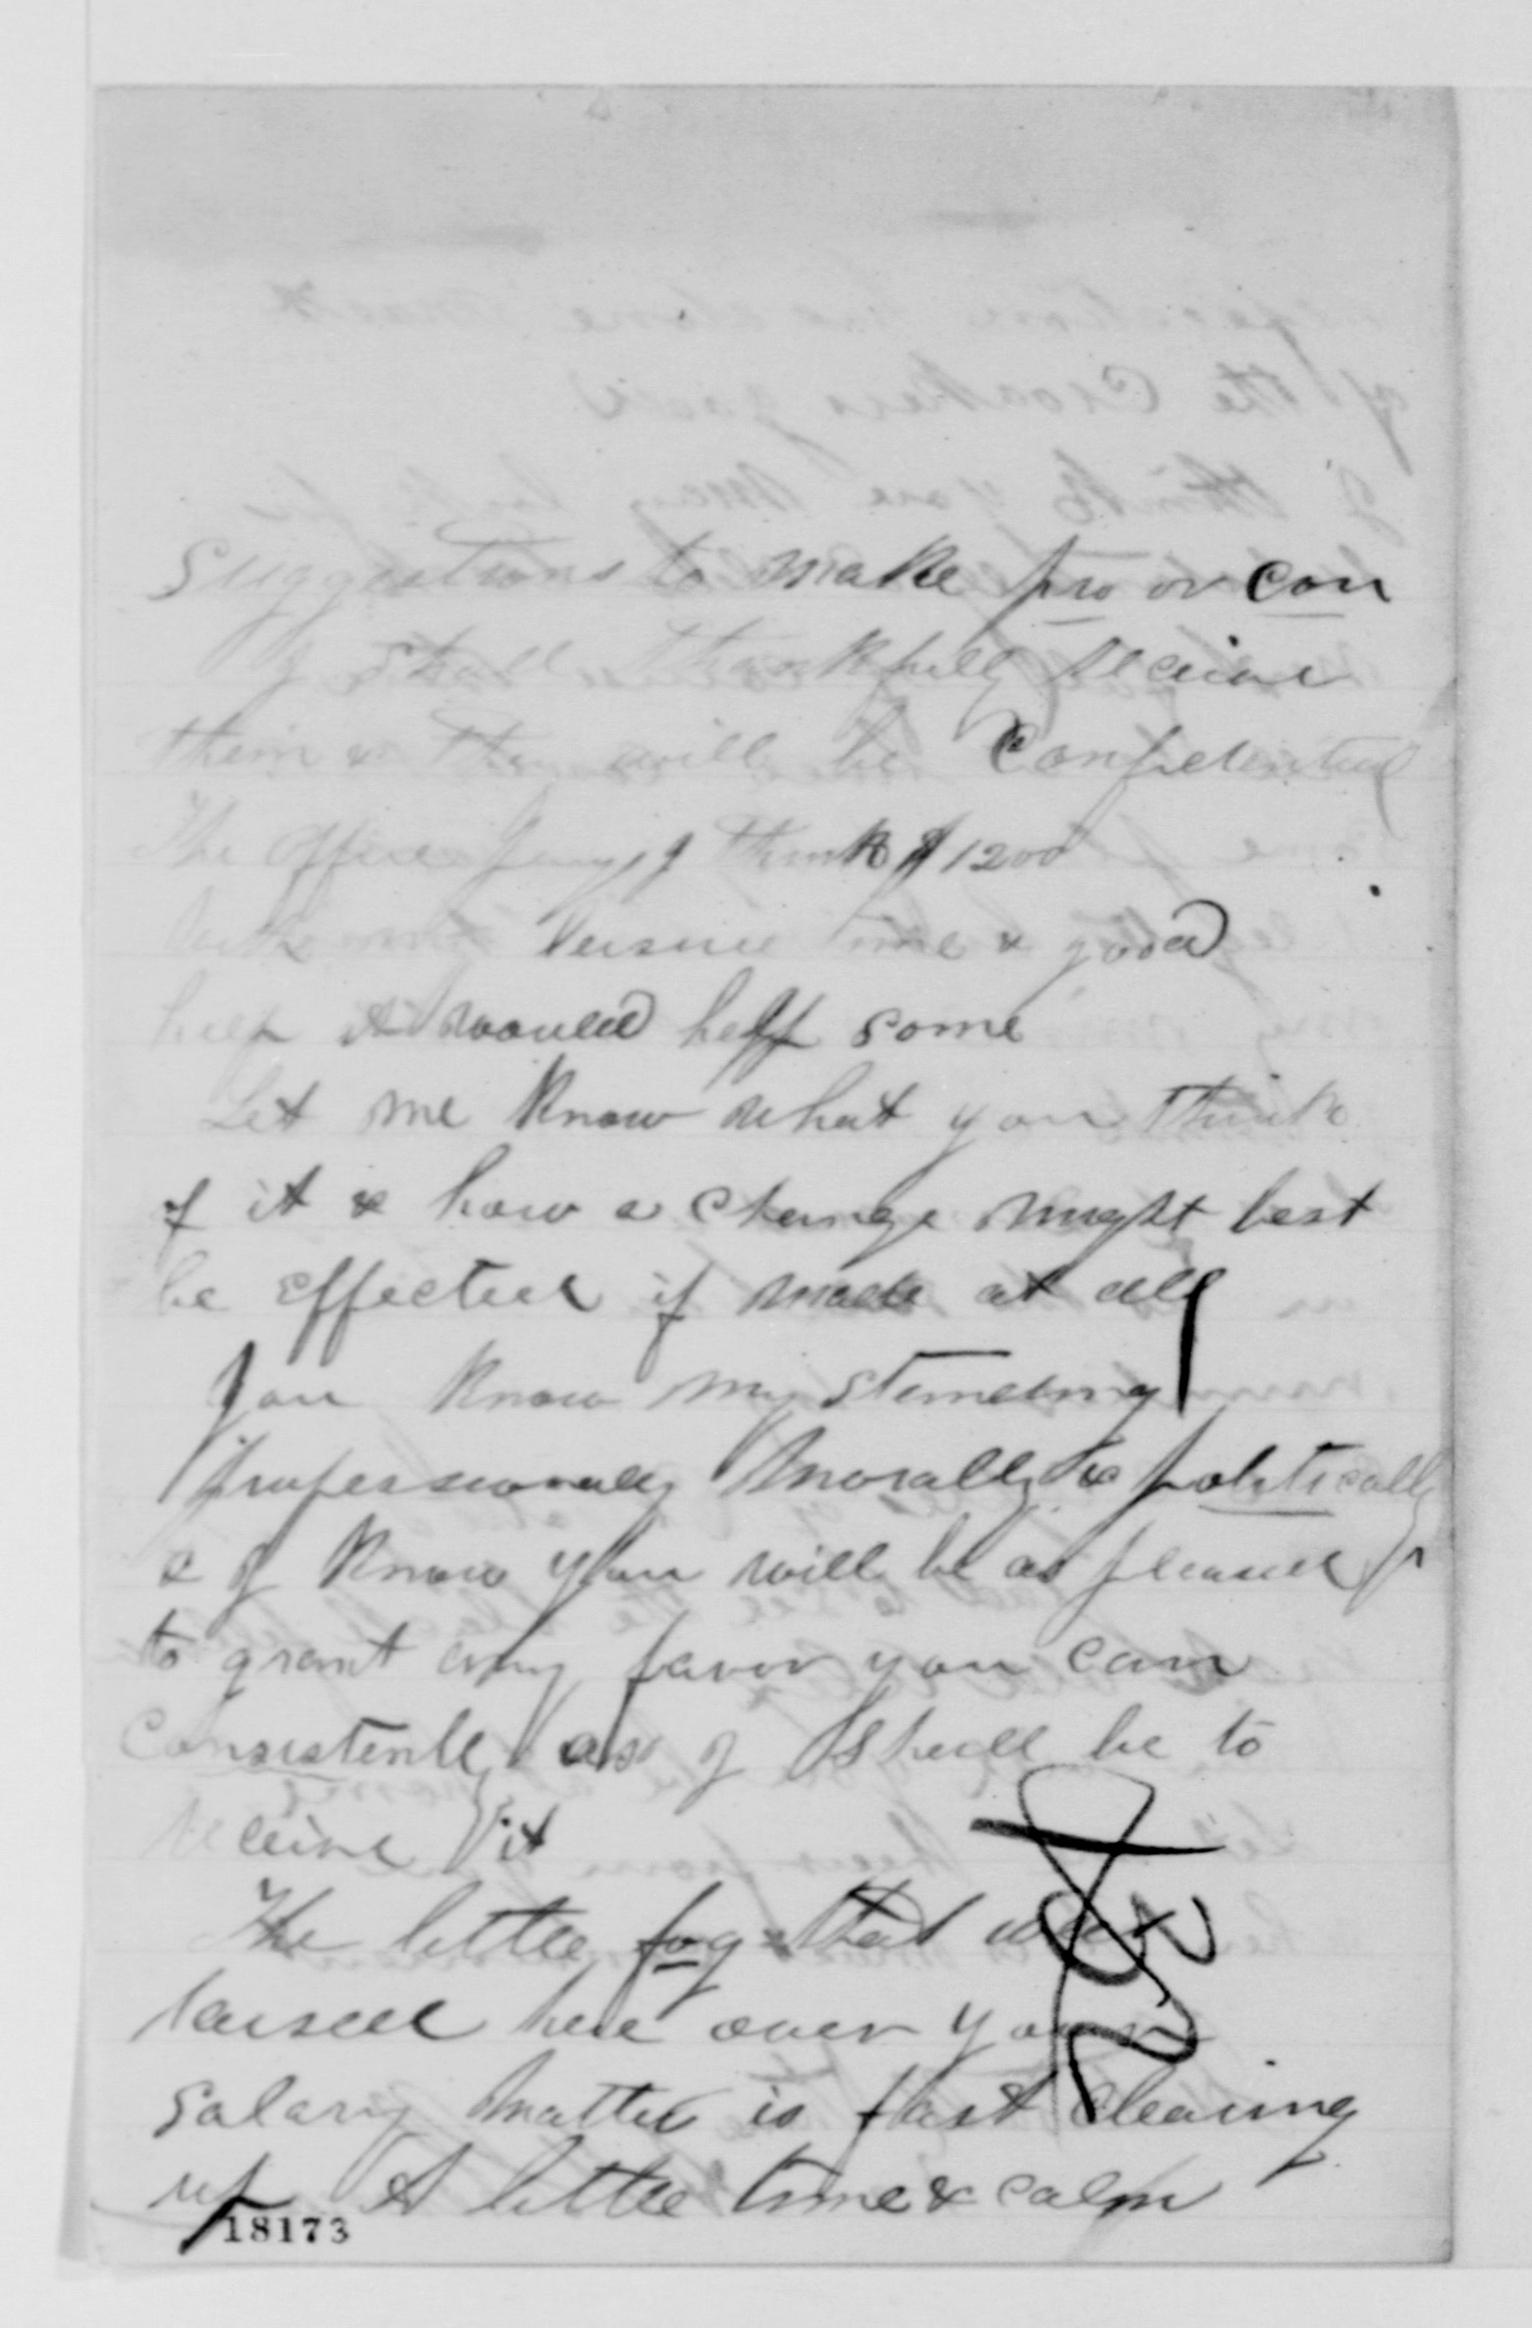 Suggestions to make pro or con
I shall thankfully receive
them & they will be Confidential
The office I think $1200
leisure time & good
help it would help some
Let me know what you think
of it & how a change might best
be effected if made at all
You know my standing
professionally morally & politically
& I know you will be as pleased
to grant any favor you can
Consistently as I shall be to
receive it
The little fog that was
raised here over your
Salary matter is fast clearing
up A little time & calm
18173